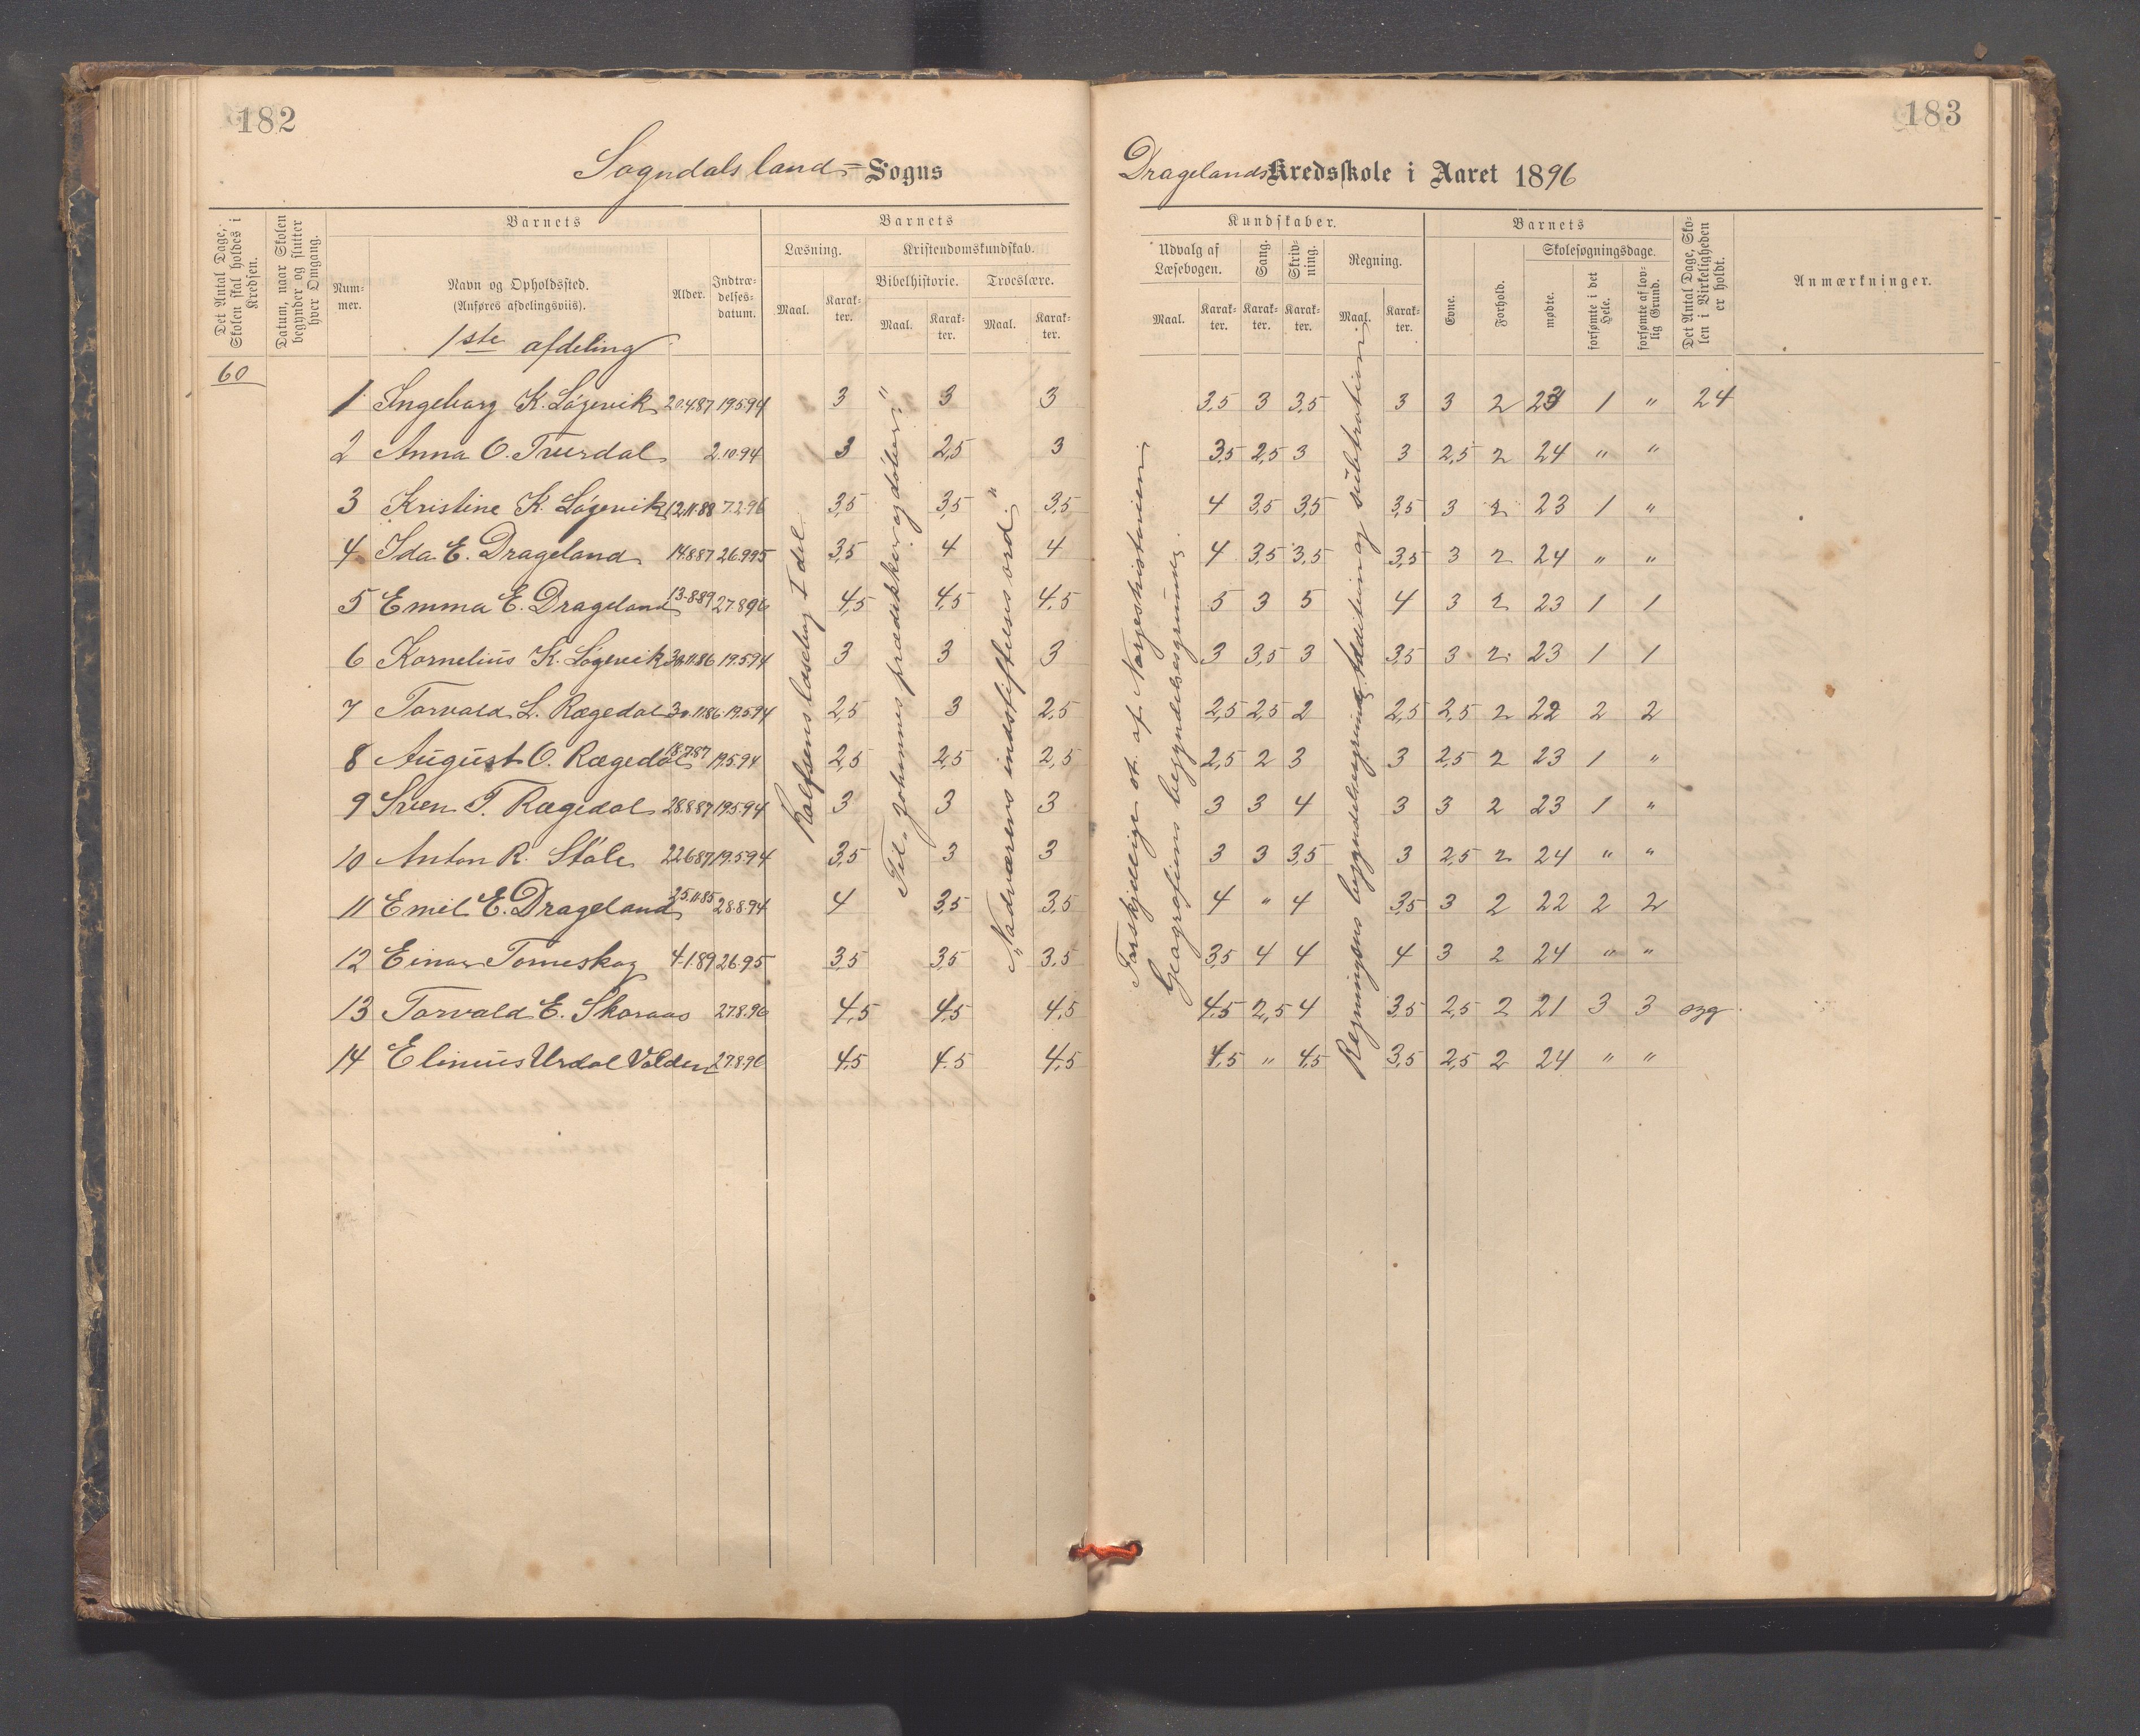 182
Sogndals land- Sogns
Det Antal Dage, Skolen skal holdes i Kredsen.
Datum, naar Skolen begynder og slutter hver Omgang.
Barnets
Num-
mer.
Navn og Opholdssted.
(Anføres afdelingsviis).
Alder.
Indtræ-
delses-
datum.
Barnets
Læsning.
Kristendomskundskab.
Bibelhistorie.
Troeslære.
Maal.
Karak-
ter.
Maal.
Karak-
ter.
Maal.
Karak-
ter.
1ste afdeling
60
1 Ingeborg K. Løgevik 20.4.87 19.5.94 3 3 3
2 Anna O. Tverdal 2.10.94 3 2,5 3
3 Kristine K. Løgevik 12.11.88 7.2.96 3,5 3,5 3,5
4 Ida E. Drageland 14.8.87 26.9.95 3,5 4 4
5 Emma E. Drageland 13.8.89 27.8.96 4,5 4,5 4,5
6 Kornelius K. Løgevik 30.11.86 19.5.94 3 3 3
7 Torvald L. Rægedal 30.11.86 19.5.94 2,5 3 2,5
8 August O. Rægedal 18.7.87 19.5.94 2,5 2,5 2,5
9 Sven T. Rægedal 28.8.87 19.5.94 3 3 3
10 Anton R. Støle 22.6.87 19.5.94 3,5 3 3
11 Emil E. Drageland 25.11.85 28.8.94 4 3,5 3,5
12 Einar Tomeskog 4.1.89 26.95 3,5 3,5 3,5
13 Torvald E. Skoraas 27.8.96 4,5 4,5 4,5
14 Elinius Urdal Valden 27.8.96 4,5 4.5 4,5
Rolfsens læsebog I del.
Til „Johannes prædiker og døber"
„Nadverens indstiftelses ord."
183
Dragelands Kredsskole i Aaret 1896
Kundskaber.
Udvalg af
Læsebogen.
Sang.
Skriv-
ning.
Regning.
Maal.
Karak-
ter.
Karak-
ter.
Karak-
ter.
Maal.
Karak-
ter.
Barnets
Evne.
Forhold.
Skolesøgningsdage.
mødte.
forsømte i det Hele.
forsømte af lov-
lig Grund.
Det Antal Dage, Sko-
len i Virkeligheden
er holdt.
Anmærkninger.
3,5 3 3,5 3 3 2 23 1 " 24
3,5 2,5 3 3 2,5 2 24 " "
4 3,5 3,5 3,5 3 2 23 1 "
4 3,5 3,5 3,5 3 2 24 " "
5 3 5 4 3 2 23 1 1
3 3,5 3 3,5 3 2 23 1 1
2,5 2,5 2 2,5 2,5 2 22 2 2
2,5 2 3 3 2,5 2 23 1 "
3 3 4 3 3 2 23 1 "
3 3 3,5 3 2,5 2 24 " "
4 " 4 3,5 3 2 22 2 2
3,5 4 4 4 3 2 24 " "
4,5 2,5 4 3,5 2,5 2 21 3 3 syg.
4,5 " 4,5 3,5 2,5 2 24 " "
Forskjellige st. af Norgeshistorien
Geografiens begyndelsesgrunde.
Regningens begyndelsesgrunde. Addition og subtraktion.